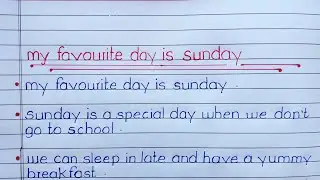 my favourite day is sunday
• my favourite day is sunday.
• sunday is a special day when we don't
go to school.
• we can sleep in late and have a yummy
breakfast.